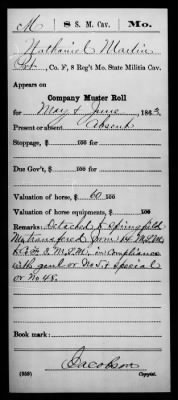 M 8 S. M. Cav. Mo.
Nathaniel Martin
Pvt., Co. F, 8 Reg't Mo. State Militia Cav.
Appears on
Company Muster Roll
for May & June, 1863.
Present or absent Absent
Stoppage, $ 100 for
Due Gov't, $ 100 for
Valuation of horse, $ 60 100
Valuation of horse equipments, $ 100
Remarks: Detached to Springfield
Mo transferred from 14 M.S.M.
to Co F 8 M.S.M. in compliance
with genl or No 5 & Special
or No 48.
Book mark:
Jacobson
(358) Copyist.